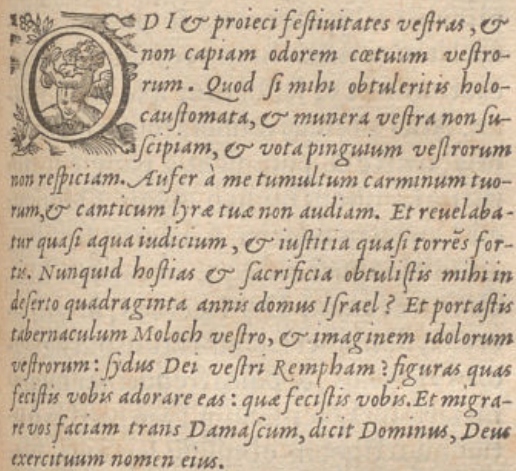 ODI & proieci festiuitates vestras, &
non capiam odorem cœtuum vestro-
rum. Quod si mihi obtuleritis holo-
caustomata, & munera vestra non su-
scipiam, & vota pinguium vestrorum
non respiciam. Aufer à me tumultum carminum tuo-
rum, & canticum lyræ tuæ non audiam. Et reuelaba-
tur quasi aqua iudicium, & iustitia quasi torrẽs for-
tis. Nunquid hostias & sacrificia obtulistis mihi in
deserto quadraginta annis domus Israel? Et portastis
tabernaculum Moloch vestro, & imaginem idolorum
vestrorum: sydus Dei vestri Rempham? figuras quas
fecistis vobis adorare eas: quæ fecistis vobis. Et migra-
re vos faciam trans Damascum, dicit Dominus, Deus
exercituum nomen eius.